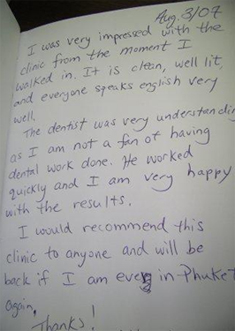 Aug. 3/07
I was very impressed with the
clinic from the moment I
walked in. It is clean, well lit,
and everyone speaks english very
well.
The dentist was very understandin
as I am not a fan of having
dental work done. He worked
quickly and I am very happy
with the results.
I would recommend this
clinic to anyone and will be
back if I am ever in Phuket
again,
Thanks!